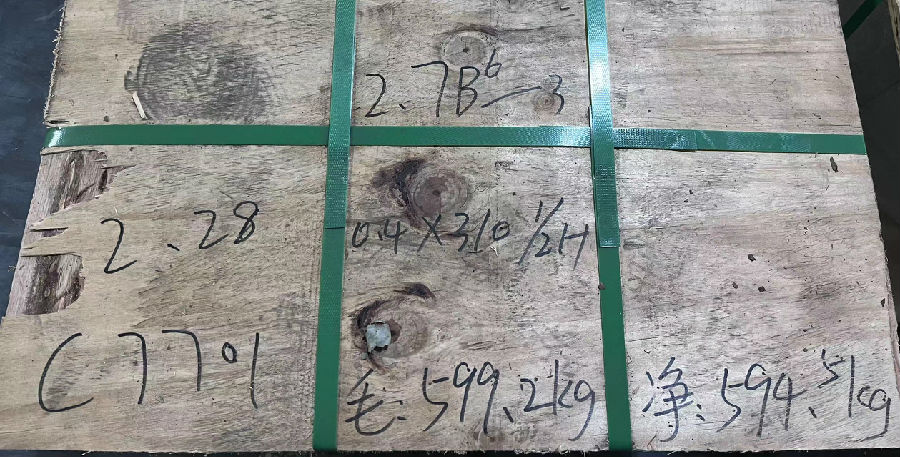 2.7B6—3
2.28
0.4×310 1/2H
C7701
毛:599.2kg
净:594.5kg